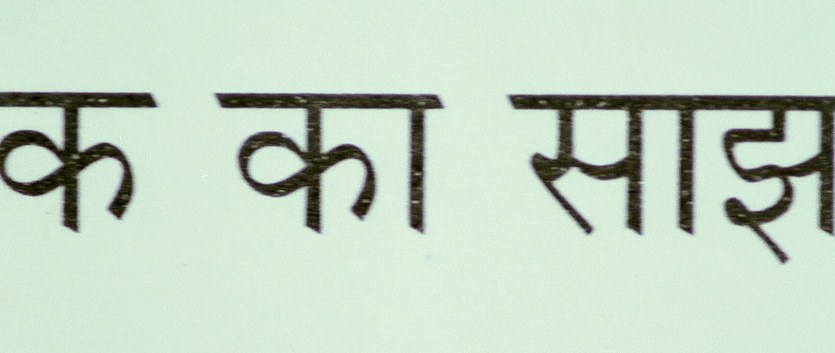 क का साझ